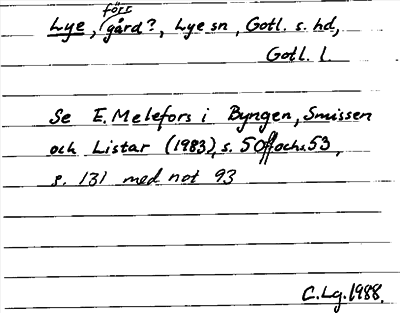 Lye, förr gård?, Lye sn, Gotl. s. hd,
Gotl. l.
Se E. Melefors i Byngen, Smissen
och Listar (1983), s. 50ff och s. 53,
s. 131 med not 93
C. Lg. 1988.